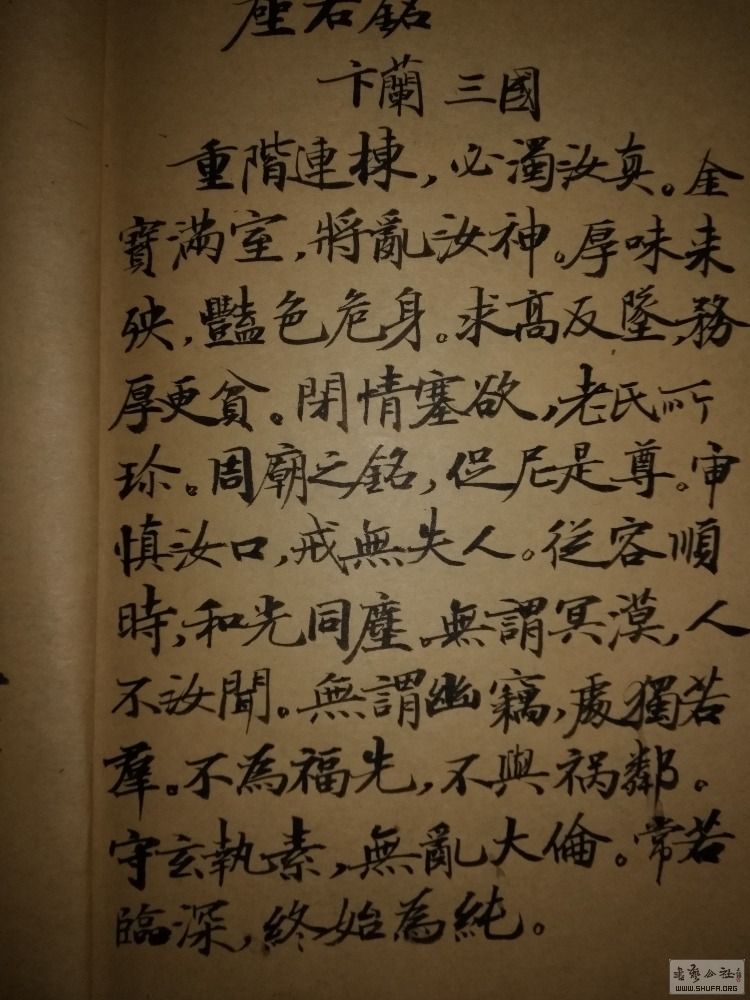 座右銘
卞蘭 三國
重階連棟，必濁汝真。金
寶滿室，將亂汝神。厚味来
殃，豔色危身。求高反墜，務
厚更貧。閉情塞欲，老氏所
珍。周廟之銘，仲尼是尊。审
慎汝口，戒無失人。從容順
時，和光同塵。無謂冥漠，人
不汝聞。無謂幽竊，處獨若
羣。不為福先，不與祸鄰。
守玄執素，無亂大倫。常若
臨深，終始為純。
WWW.SHUFA.ORG